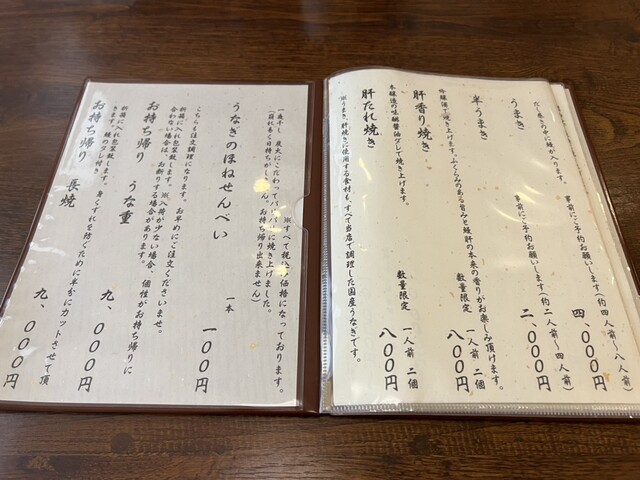 うまき 四、〇〇〇円
だし巻きの中に鰻が入ります。
事前にご予約お願いします(約四人前〜八人前)
半うまき 二、〇〇〇円
事前にご予約お願いします(約二人前〜四人前)
肝香り焼き 数量限定 一人前 二個 八〇〇円
吟醸酒で焼き上げます。ふくらみのある旨みと鰻肝の本来の香りがお楽しみ頂けます。
肝たれ焼き 数量限定 一人前 二個 八〇〇円
本醸造の味醂醤油ダレで焼き上げます。
※うまき、肝焼きに使用する食材も、すべて当店で調理した国産うなぎです。
※すべて税込み価格になっております。
うなぎのほねせんべい 一本 一〇〇円
一本一本、炭火にこだわってパリパリに焼き上げました。
(崩れ易く日持ちがしません。お持ち帰り出来ません)
お持ち帰り うな重 九、〇〇〇円
こちらも注文調理になります。お早めにご注文くださいませ。
折箱に入れ包装致します。※入荷が少ない場合、個性がお持ち帰りに
合わない場合は、お断りする場合があります。
お持ち帰り 長焼 九、〇〇〇円
折箱に入れ包装致します。身くずれを防ぐために半分にカットさせて頂
きます。鰻のタレ付き